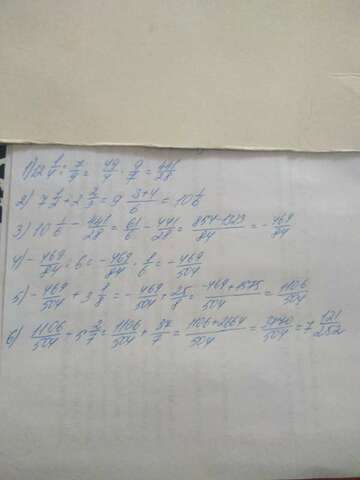 1) 12 1/4 : 7/9 = 49/4 · 9/7 = 441/28
2) 7 1/2 + 2 2/3 = 9 (3+4)/6 = 10 1/6
3) 10 1/6 - 441/28 = 61/6 - 441/28 = (854-1323)/84 = - 469/84
4) - 469/84 : 6 = - 469/84 · 1/6 = - 469/504
5) - 469/504 + 3 1/8 = - 469/504 + 25/8 = (-469+1575)/504 = 1106/504
6) 1106/504 + 5 2/7 = 1106/504 + 37/7 = (1106+2664)/504 = 3770/504 = 7 121/252